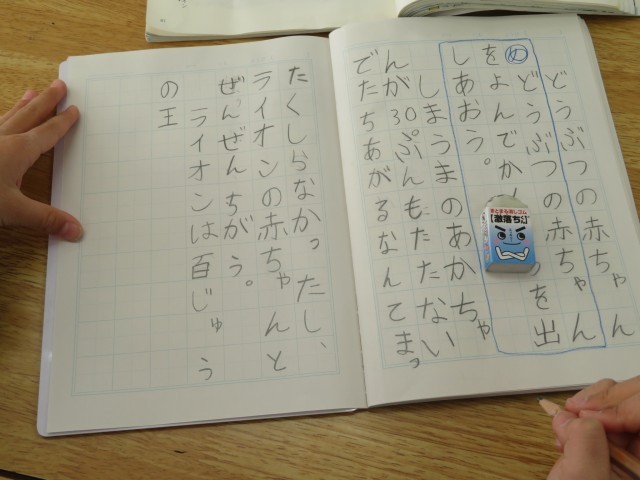 どうぶつの赤ちゃん
め どうぶつの赤ちゃん
をよんでか を出
しあおう。
しまうまのあかちゃ
んが30ぷんもたたない
でたちあがるなんてまっ
たくしらなかったし、
ライオンの赤ちゃんと
ぜんぜんちがう。
ライオンは百じゅう
の王
まとまる消しゴム
【激落ちくん】